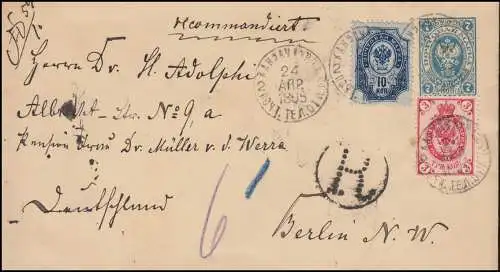 recommandiert.
Herrn Dr. H. Adolphi
Albrecht str. No 9, a
Pension Frau Dr. Müller v. d. Werra
Deutschland
Berlin N. W.
24
АПР.
1895
10
КОП.
7
7
7
7
3
3
6
1